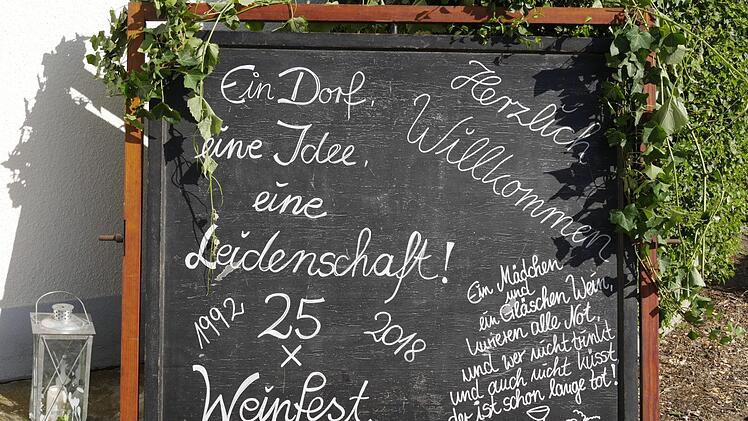 Ein Dorf,
eine Idee,
eine
Leidenschaft!
1992 25 2018
×
Weinfest
Herzlich
Willkommen
Ein Mädchen
und
ein Gläschen Wein,
kurieren alle Not,
und wer nicht trinkt
und auch nicht küsst,
der ist schon lange tot!